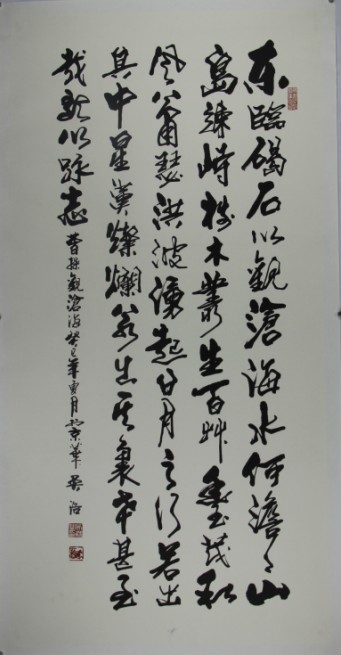 東臨碣石以觀滄海水何澹々山
島竦峙樹木叢生百艸豐茂秋
風蕭瑟洪波湧起日月之行若出
其中星漢燦爛若出其裏幸甚至
哉歌以詠志 曹操觀滄海癸巳年夏月於京華